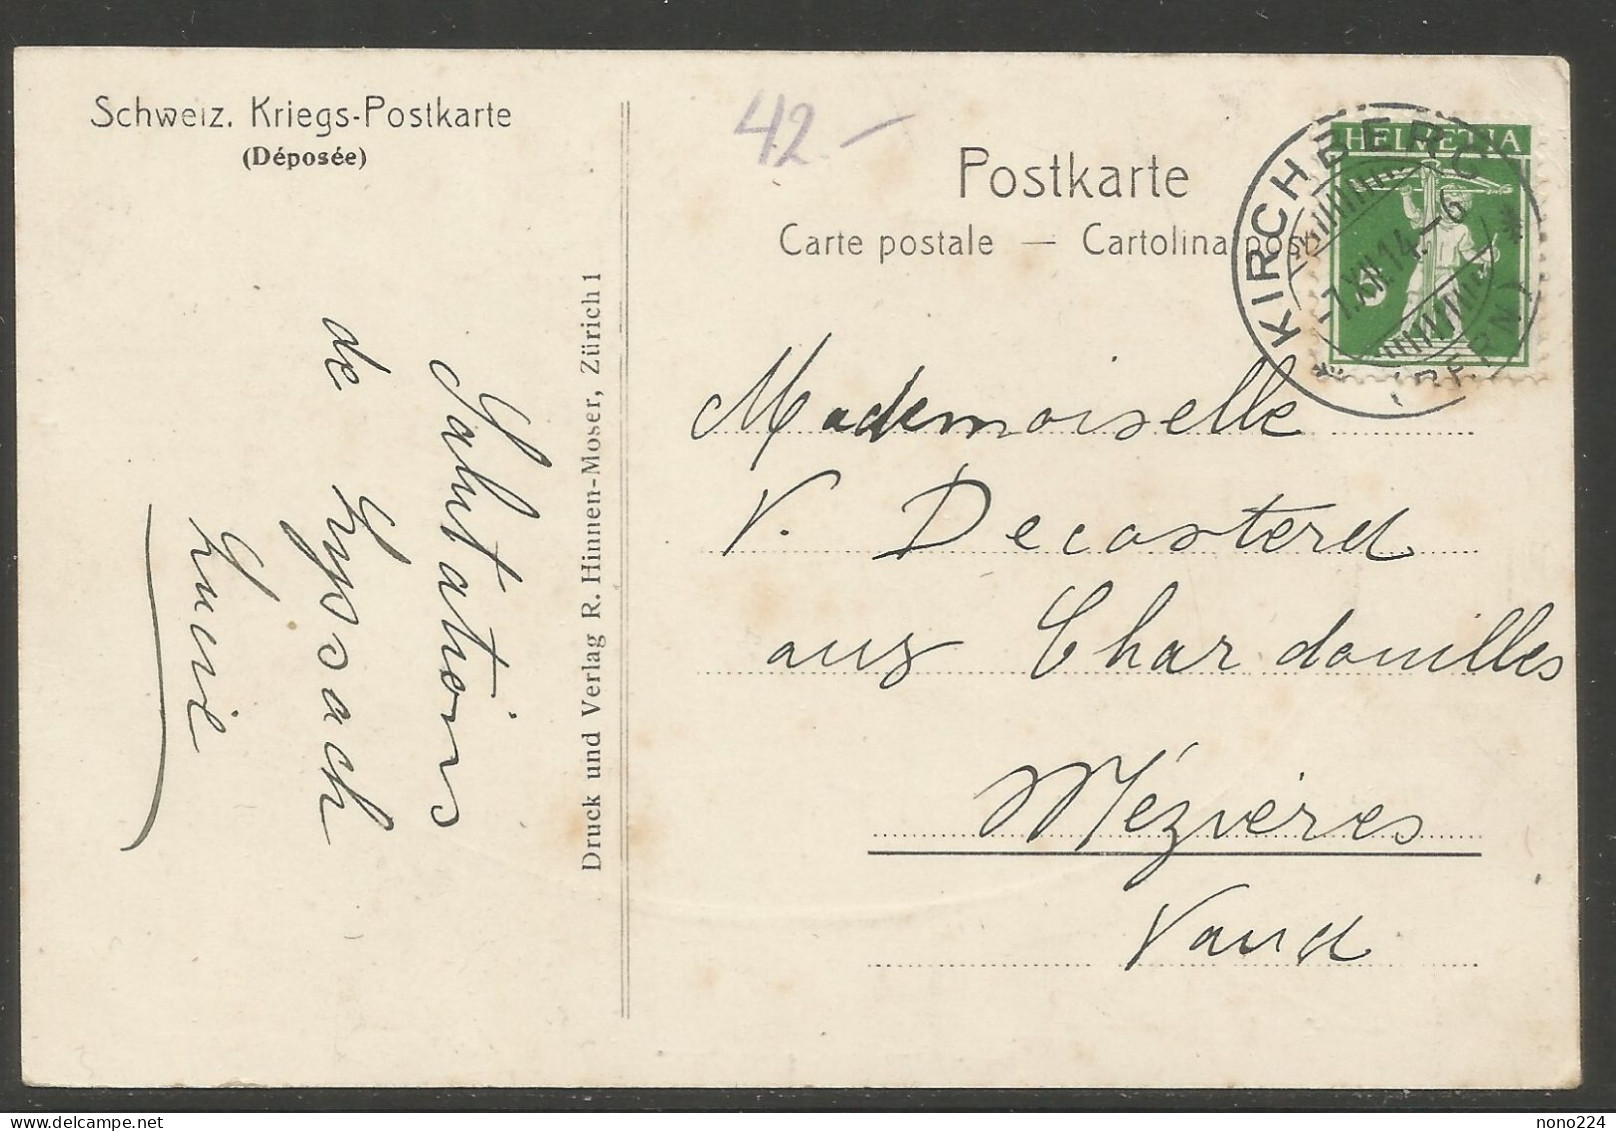 Schweiz. Kriegs-Postkarte
(Déposée)
42.-
Postkarte
Carte postale — Cartolina pos
HELVETIA
5
KIRCHBERG
(BERN)
7.XII.14.-6
Salutations
de Kyssach
Lucie
Druck und Verlag R. Hinnen-Moser, Zürich 1
Mademoiselle
V. Decosterd
aux Chardouilles
Mézières
Vaud
nono224